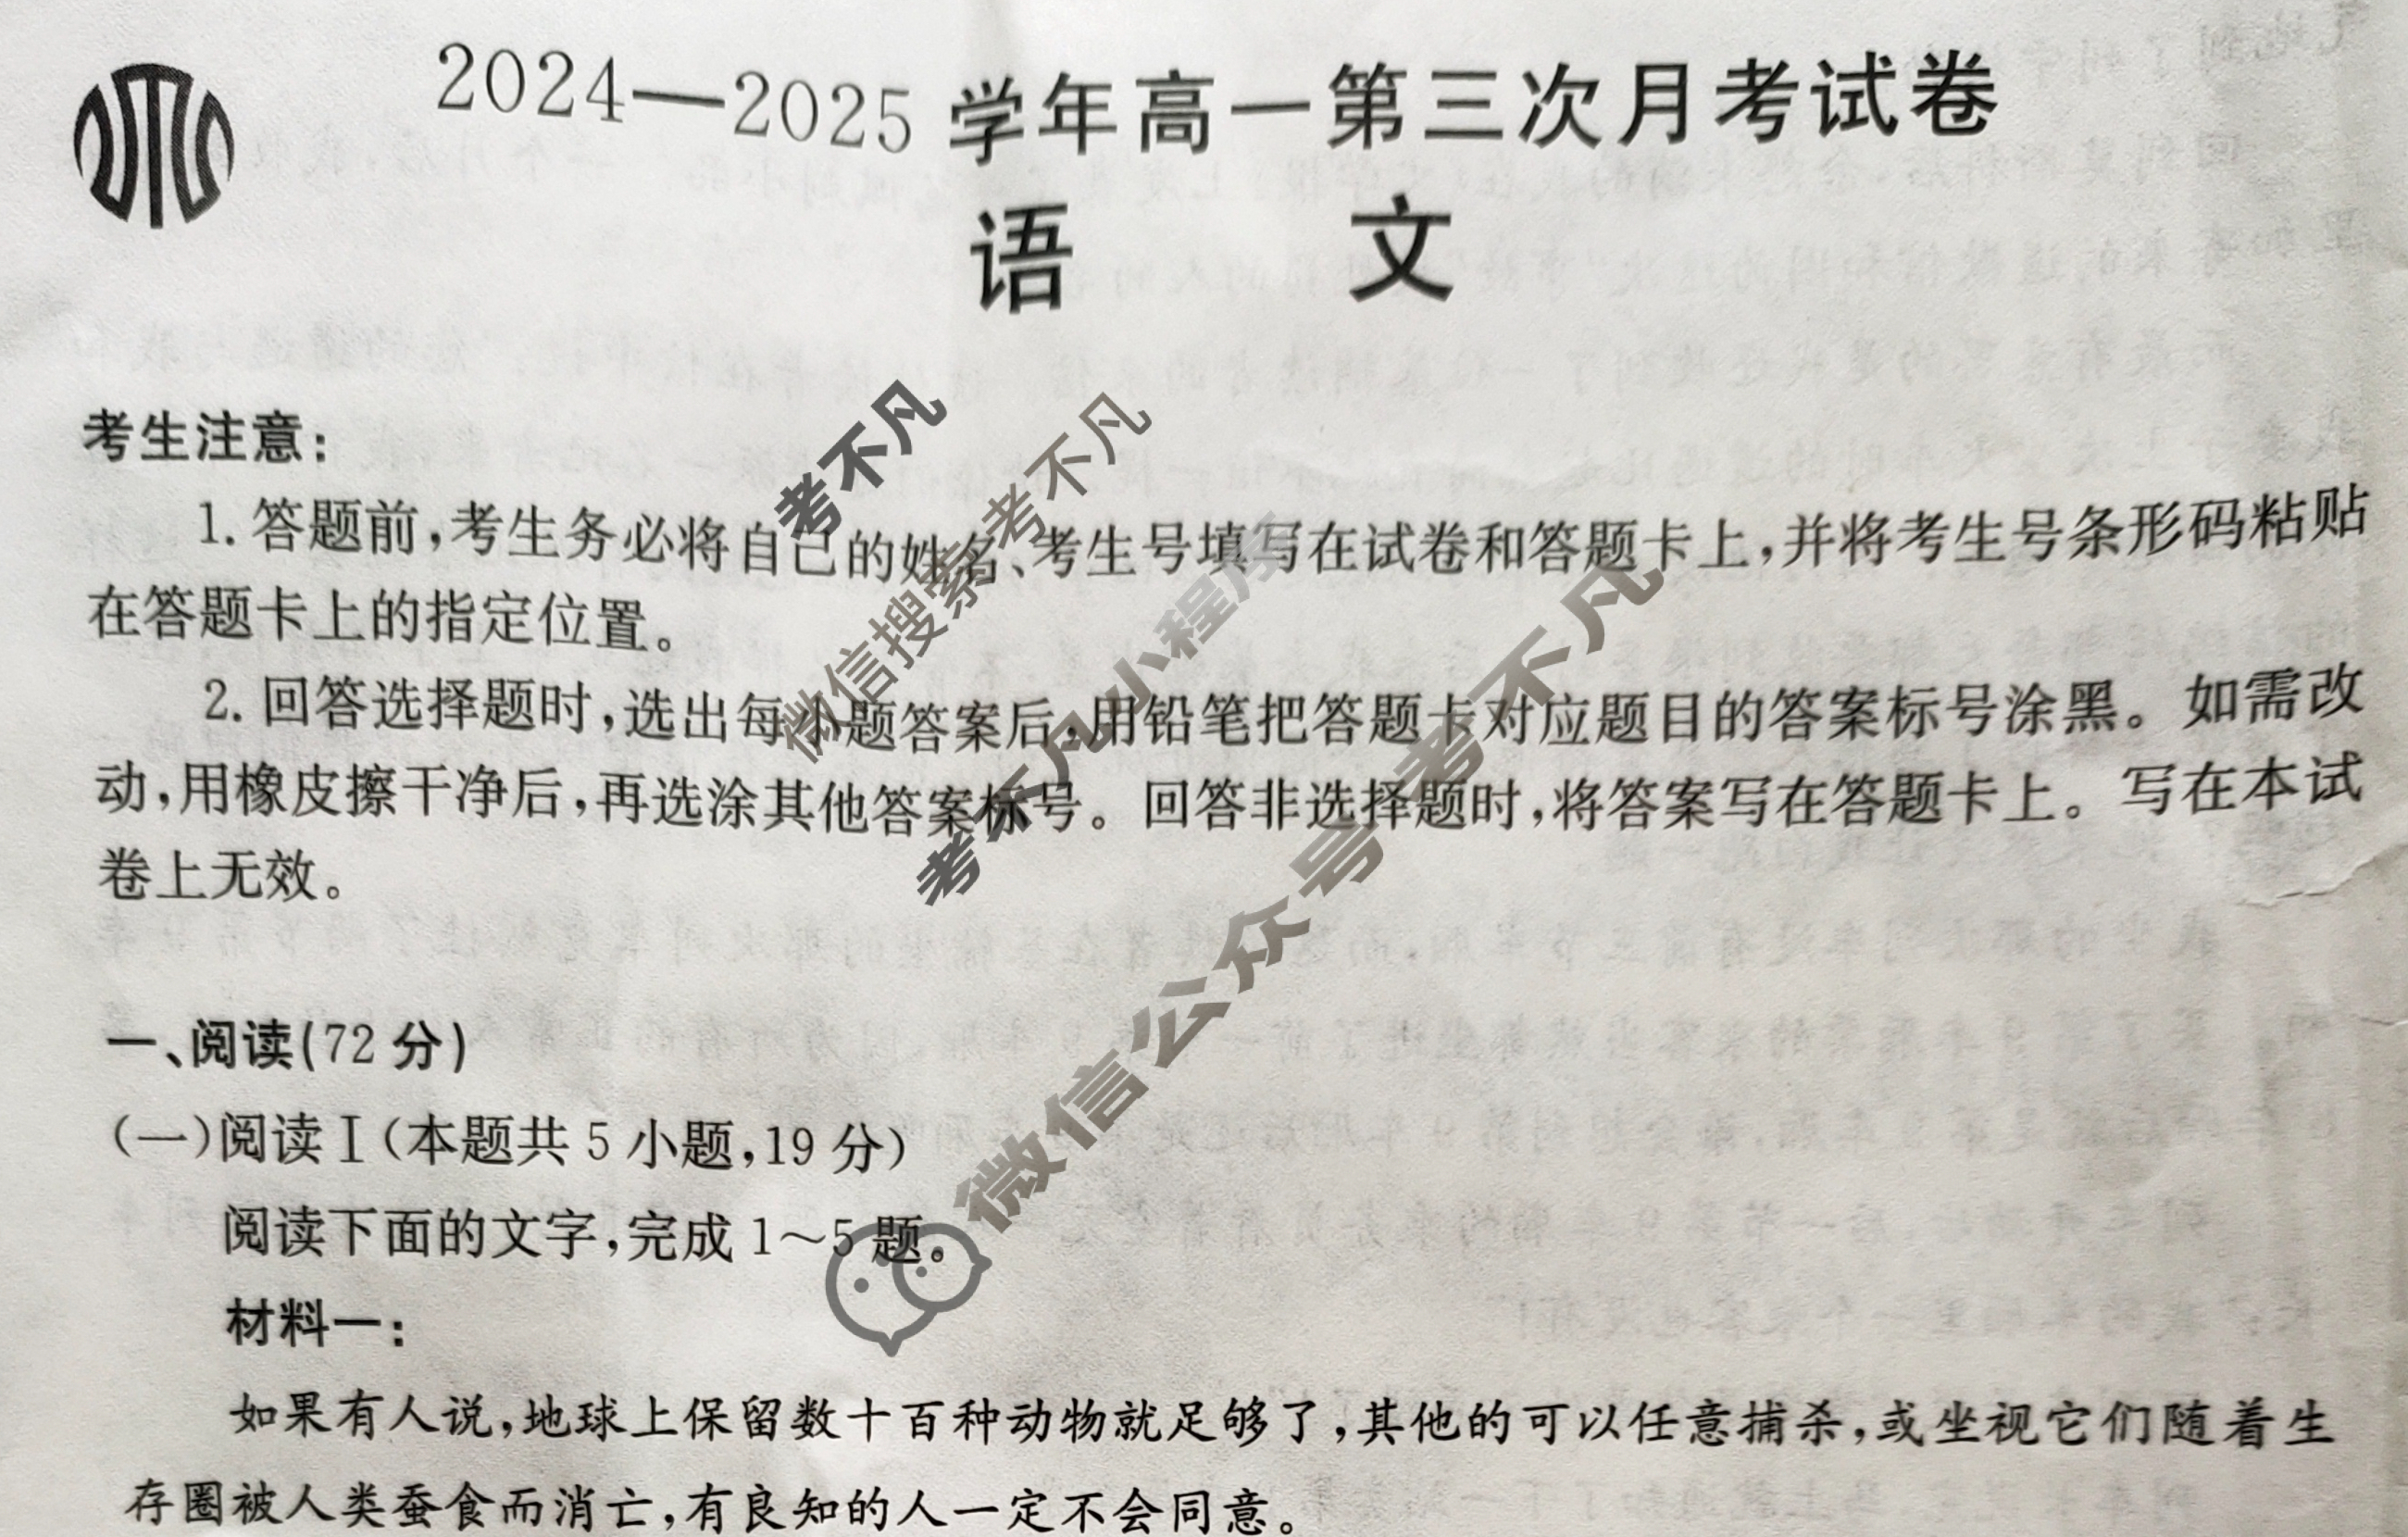 2024—2025学年高一第三次月考试卷
语 文
考生注意：
1. 答题前，考生务必将自己的姓名、考生号填写在试卷和答题卡上，并将考生号条形码粘贴
在答题卡上的指定位置。
2. 回答选择题时，选出每小题答案后，用铅笔把答题卡对应题目的答案标号涂黑。如需改
动，用橡皮擦干净后，再选涂其他答案标号。回答非选择题时，将答案写在答题卡上。写在本试
卷上无效。
一、阅读(72分)
(一)阅读Ⅰ(本题共5小题，19分)
阅读下面的文字，完成1～5题。
材料一：
如果有人说，地球上保留数十百种动物就足够了，其他的可以任意捕杀，或坐视它们随着生
存圈被人类蚕食而消亡，有良知的人一定不会同意。
考不凡
微信搜索考不凡
考不凡小程序
微信公众号考不凡